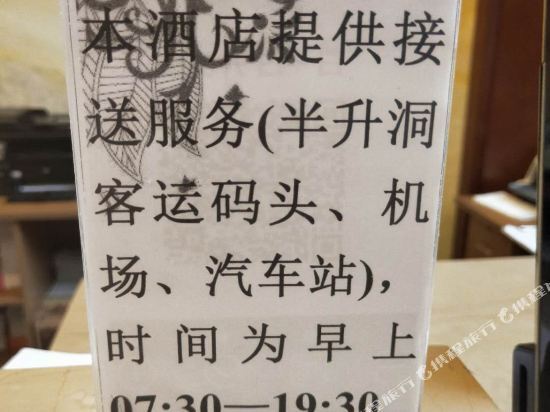 本酒店提供接
送服务(半升洞
客运码头、机
场、汽车站)，
时间为早上
07:30—19:30
携程旅行 携程旅行